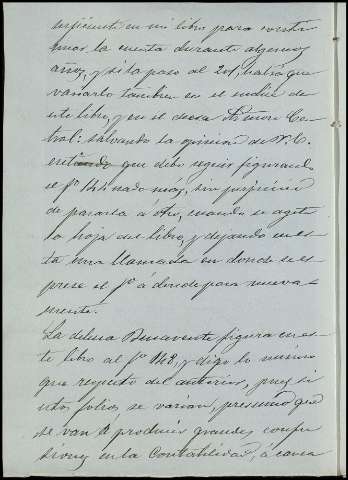 suficiente en mi libro para conti-
nuar la cuenta durante algunos
años, y si la paso al 201, habría que
variarlo tambien en el indice de
este libro, y en el de esa
tral: salvando la opinion de V. C.
creo que debo seguir figurando
el fº 144 nada mas, sin perjuicio
de pasarla á otro, cuando se agote
la hoja del libro, y dejando en es-
ta una llamada en donde se es-
prese el fº á donde pasa nueva-
mente.
La dehesa Benavente figura en es-
te libro al fº 148, y digo lo mismo
que respecto del anterior, pues si
estos folios, se varian, presumo que
se van á producir grandes confu-
siones en la Contabilidad, á causa